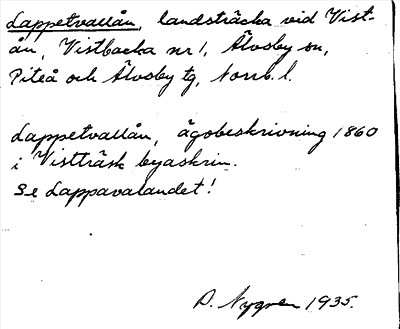 Lappetvallån, landsträcka vid Vist-
ån, Vistbacka nr 1, Älvsby sn,
Piteå och Älvsby tg, Norrb. l.
Lappetvallån, ägobeskrivning 1860
i Vistträsk byaskrin.
Se Lappavalandet!
D. Nygren 1935.